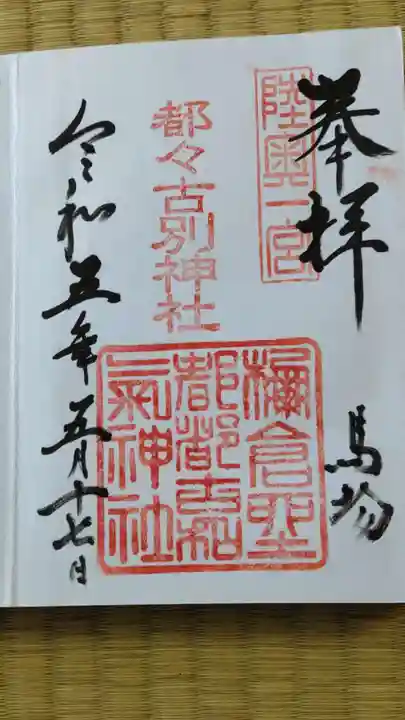 奉拝
馬場
陸奥一宮
都々古別神社
棚倉里
都都古和
氣神社
令和五年五月十七日